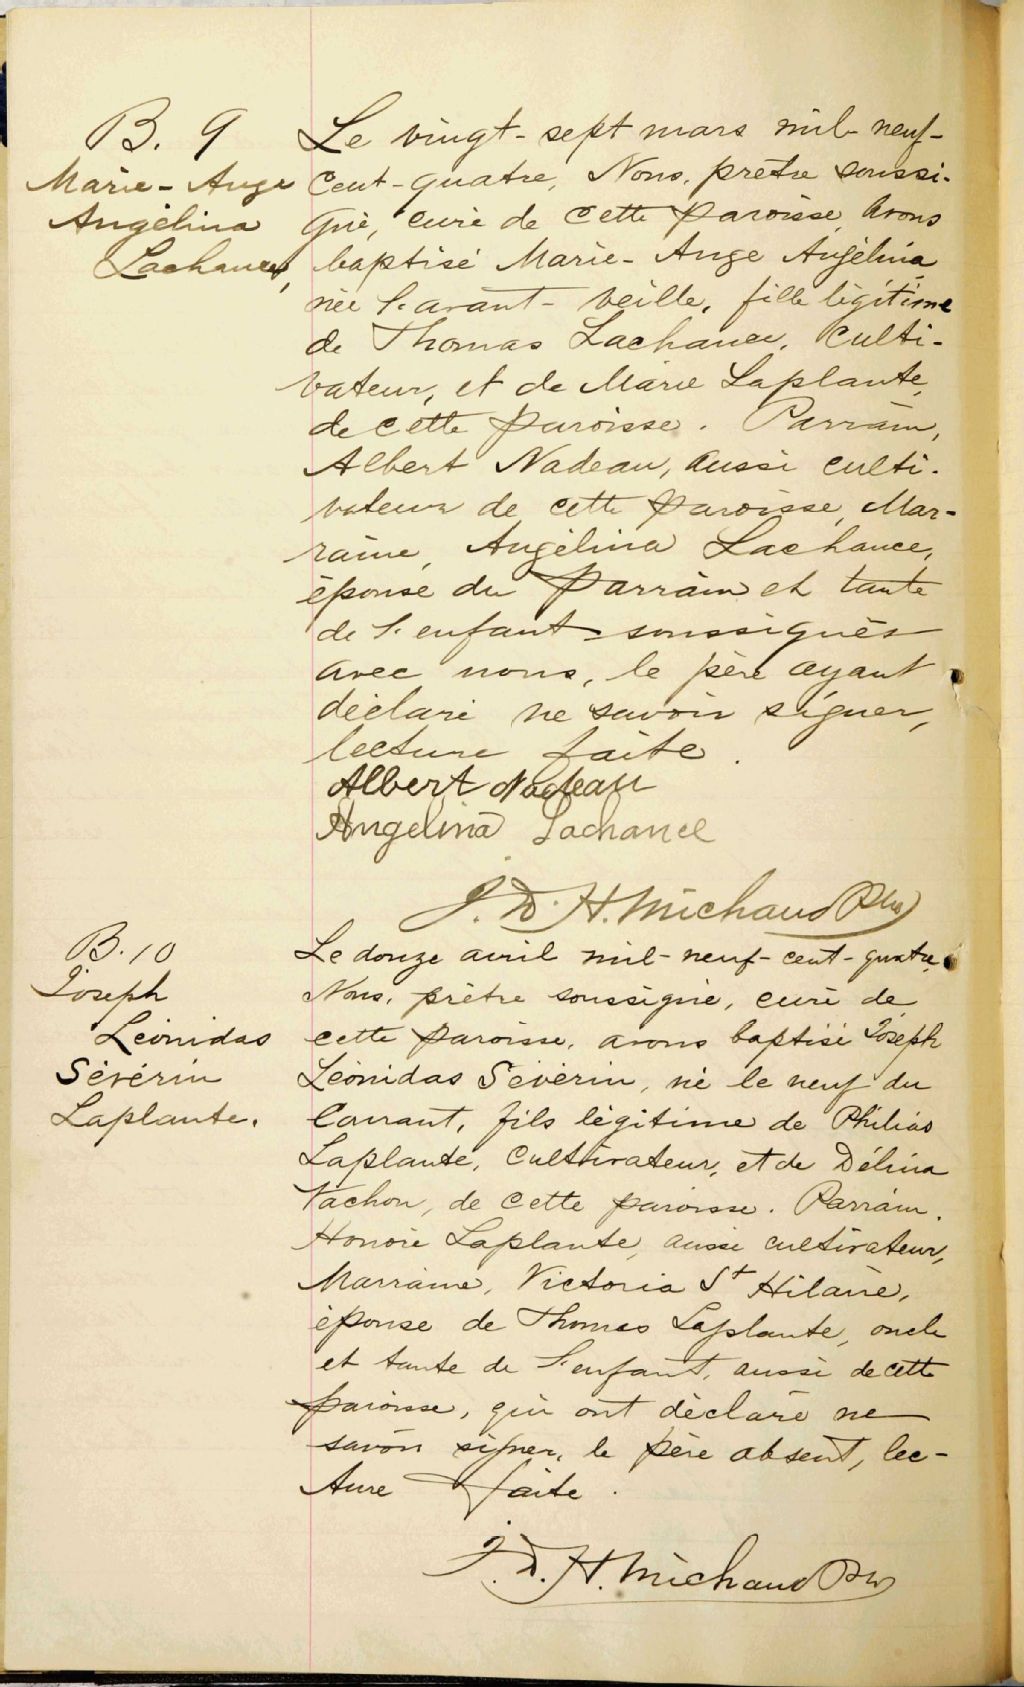 B. 9
Marie-Ange
Angélina
Lachance,
Le vingt-sept mars mil-neuf-
cent-quatre, Nous, prêtre soussi-
gné, curé de cette paroisse, avons
baptisé Marie-Ange Angélina
née l'avant-veille, fille légitime
de Thomas Lachance, culti-
vateur, et de Marie Laplante,
de cette paroisse. Parrain,
Albert Nadeau, aussi culti-
vateur de cette paroisse, Mar-
raine, Angélina Lachance,
épouse du Parrain et tante
de l'enfant soussignés
avec nous, le père ayant
déclaré ne savoir signer,
lecture faite.
Albert Nadeau
Angelina Lachance
J. D. H. Michaud Ptre
B. 10
Joseph
Léonidas
Sévérin
Laplante.
Le douze avril mil-neuf-cent-quatre,
Nous, prêtre soussigné, curé de
cette paroisse, avons baptisé Joseph
Léonidas Sévérin, né le neuf du
Courant, fils légitime de Philias
Laplante, Cultivateur, et de Délina
Vachon, de cette paroisse. Parrain,
Honoré Laplante, aussi cultivateur,
Marraine, Victoria St Hilaire,
épouse de Thomas Laplante, oncle
et tante de l'enfant, aussi de cette
paroisse, qui ont déclaré ne
savoir signer, le père absent, lec-
ture faite.
J. D. H. Michaud Ptre